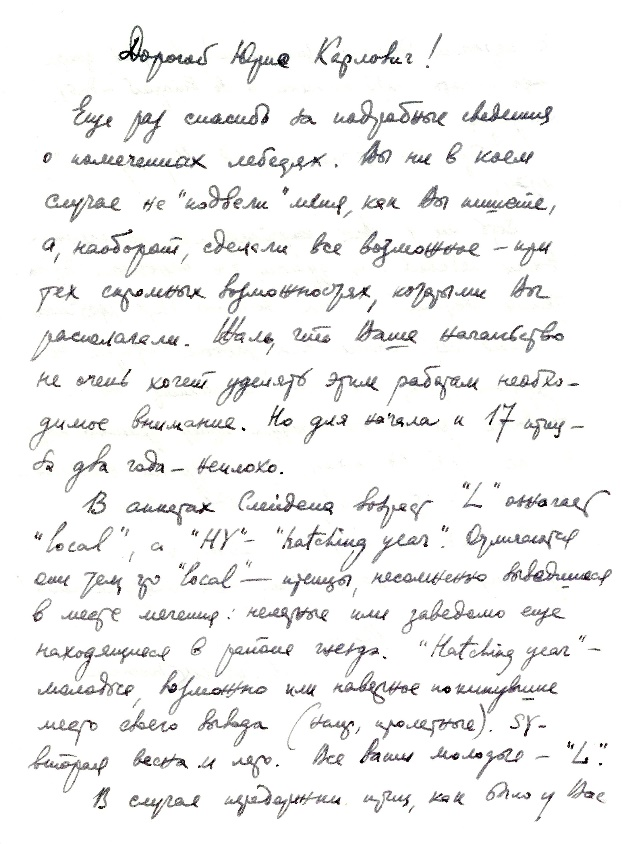 Дорогой Юрие Карлович!
Еще раз спасибо за подробные сведения
о помеченных лебедях. Вы ни в коем
случае не "подвели" меня, как Вы пишете,
а, наоборот, сделали все возможное – при
тех скромных возможностях, которыми Вы
располагали. Жаль, что Ваше начальство
не очень хочет уделять этим работам необхо-
димое внимание. Но для начала и 17 птиц –
за два года – неплохо.
В анкетах Слейдена возраст "L" означает
"local", а "HY" – "hatching year". Отличаются
они тем, что "local" – птицы, несомненно выводившиеся
в месте мечения: нелетные или заведомо еще
находящиеся в районе гнезда. "Hatching year" –
молодые, возможно или наверное покинувшие
место своего вывода (напр., пролетные). SY –
вторая весна и лето. Все ваши молодые – "L".
В случае передержки птиц, как было у Вас